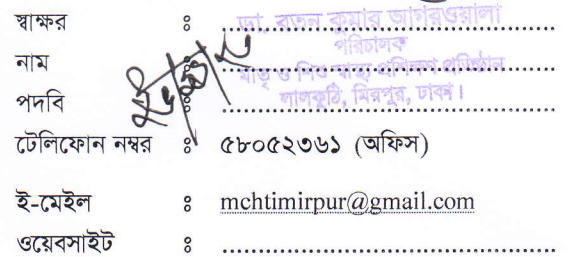 স্বাক্ষর ঃ ডা. রতন কুমার আগরওয়ালা
পরিচালক
নাম ঃ মাতৃ ও শিশু স্বাস্থ্য প্রশিক্ষণ প্রতিষ্ঠান
পদবি ঃ লালকুঠি, মিরপুর, ঢাকা।
টেলিফোন নম্বর ঃ ৫৮০৫২৩৬১ (অফিস)
ই-মেইল ঃ mchtimirpur@gmail.com
ওয়েবসাইট ঃ